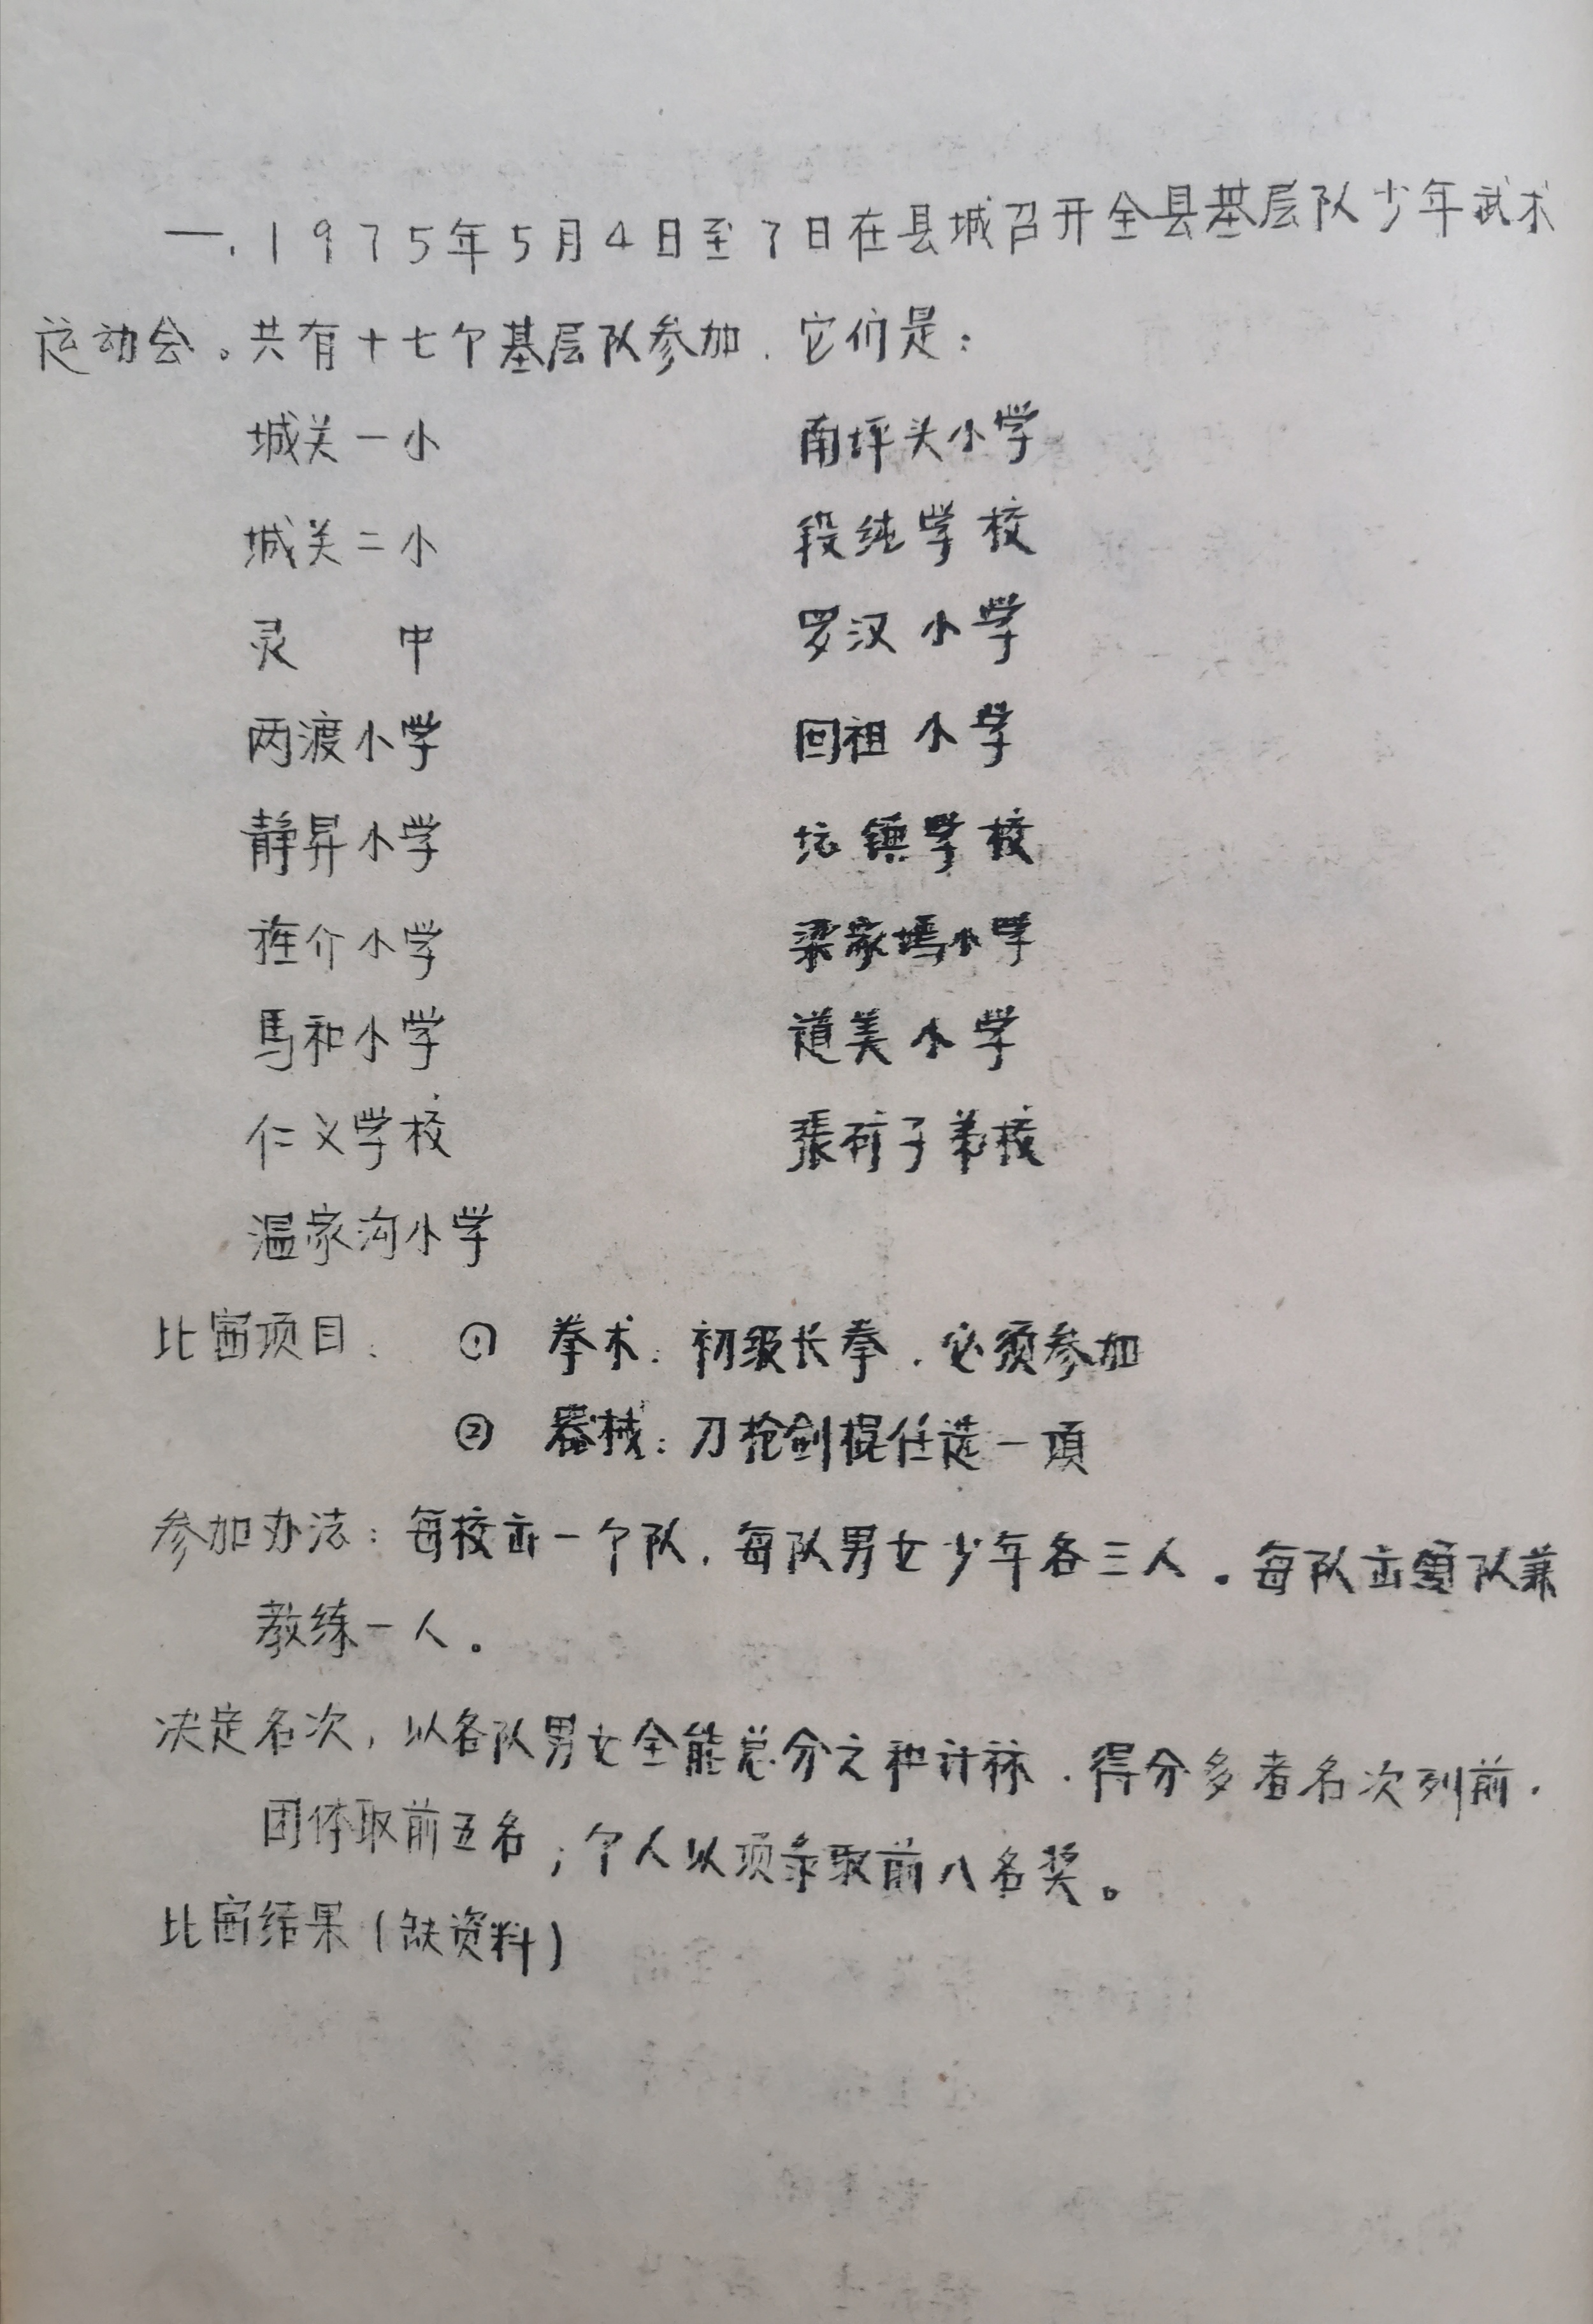 一.1975年5月4日至7日在县城召开全县基层队少年武术
运动会。共有十七个基层队参加.它们是：
城关一小 南坪头小学
城关二小 段纯学校
灵 中 罗汉小学
两渡小学 回祖小学
静昇小学 坛镇学校
小学 梁家墕小学
馬和小学 道美小学
仁义学校 張矿子弟校
温家沟小学
比赛项目： ① 拳术：初级长拳.必须参加
② 器械：刀枪剑棍任选一项
参加办法：每校出一个队.每队男女少年各三人。每队出领队兼
教练一人。
决定名次，以各队男女全能总分之和计称.得分多者名次列前.
团体取前五名；个人以项录取前八名奖。
比赛结果(缺资料)